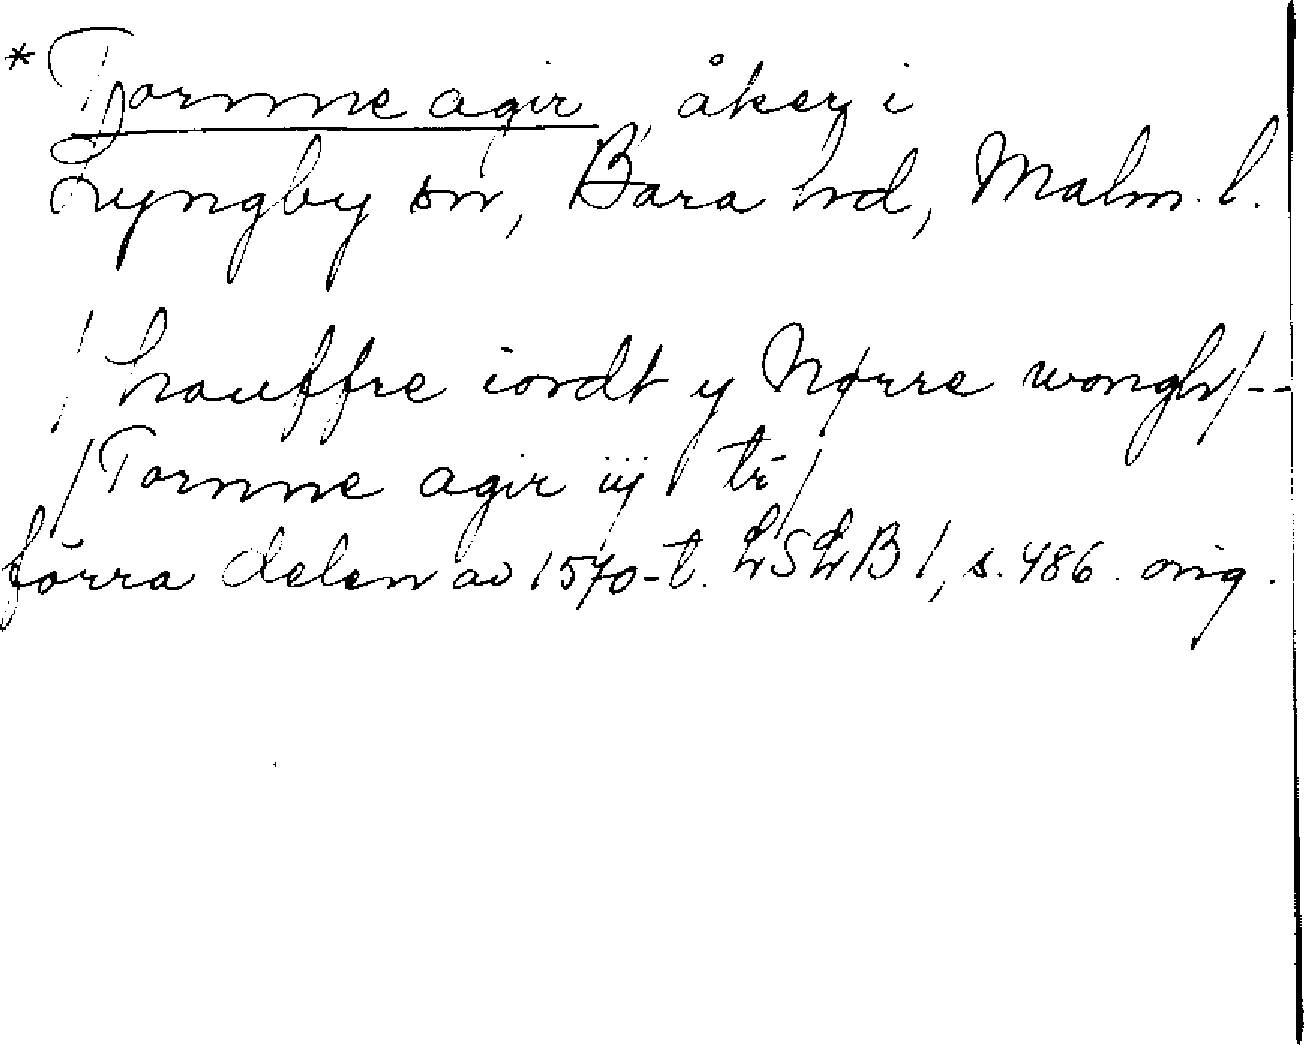 * Tornne agir, åker i
Lyngby sn, Bara hd, Malm. l.
/ hauffre iordt y Nørre wongh / --
/ Tornne agir iij tr /
förra delen av 1570-t. LSLB 1, s. 486. orig.